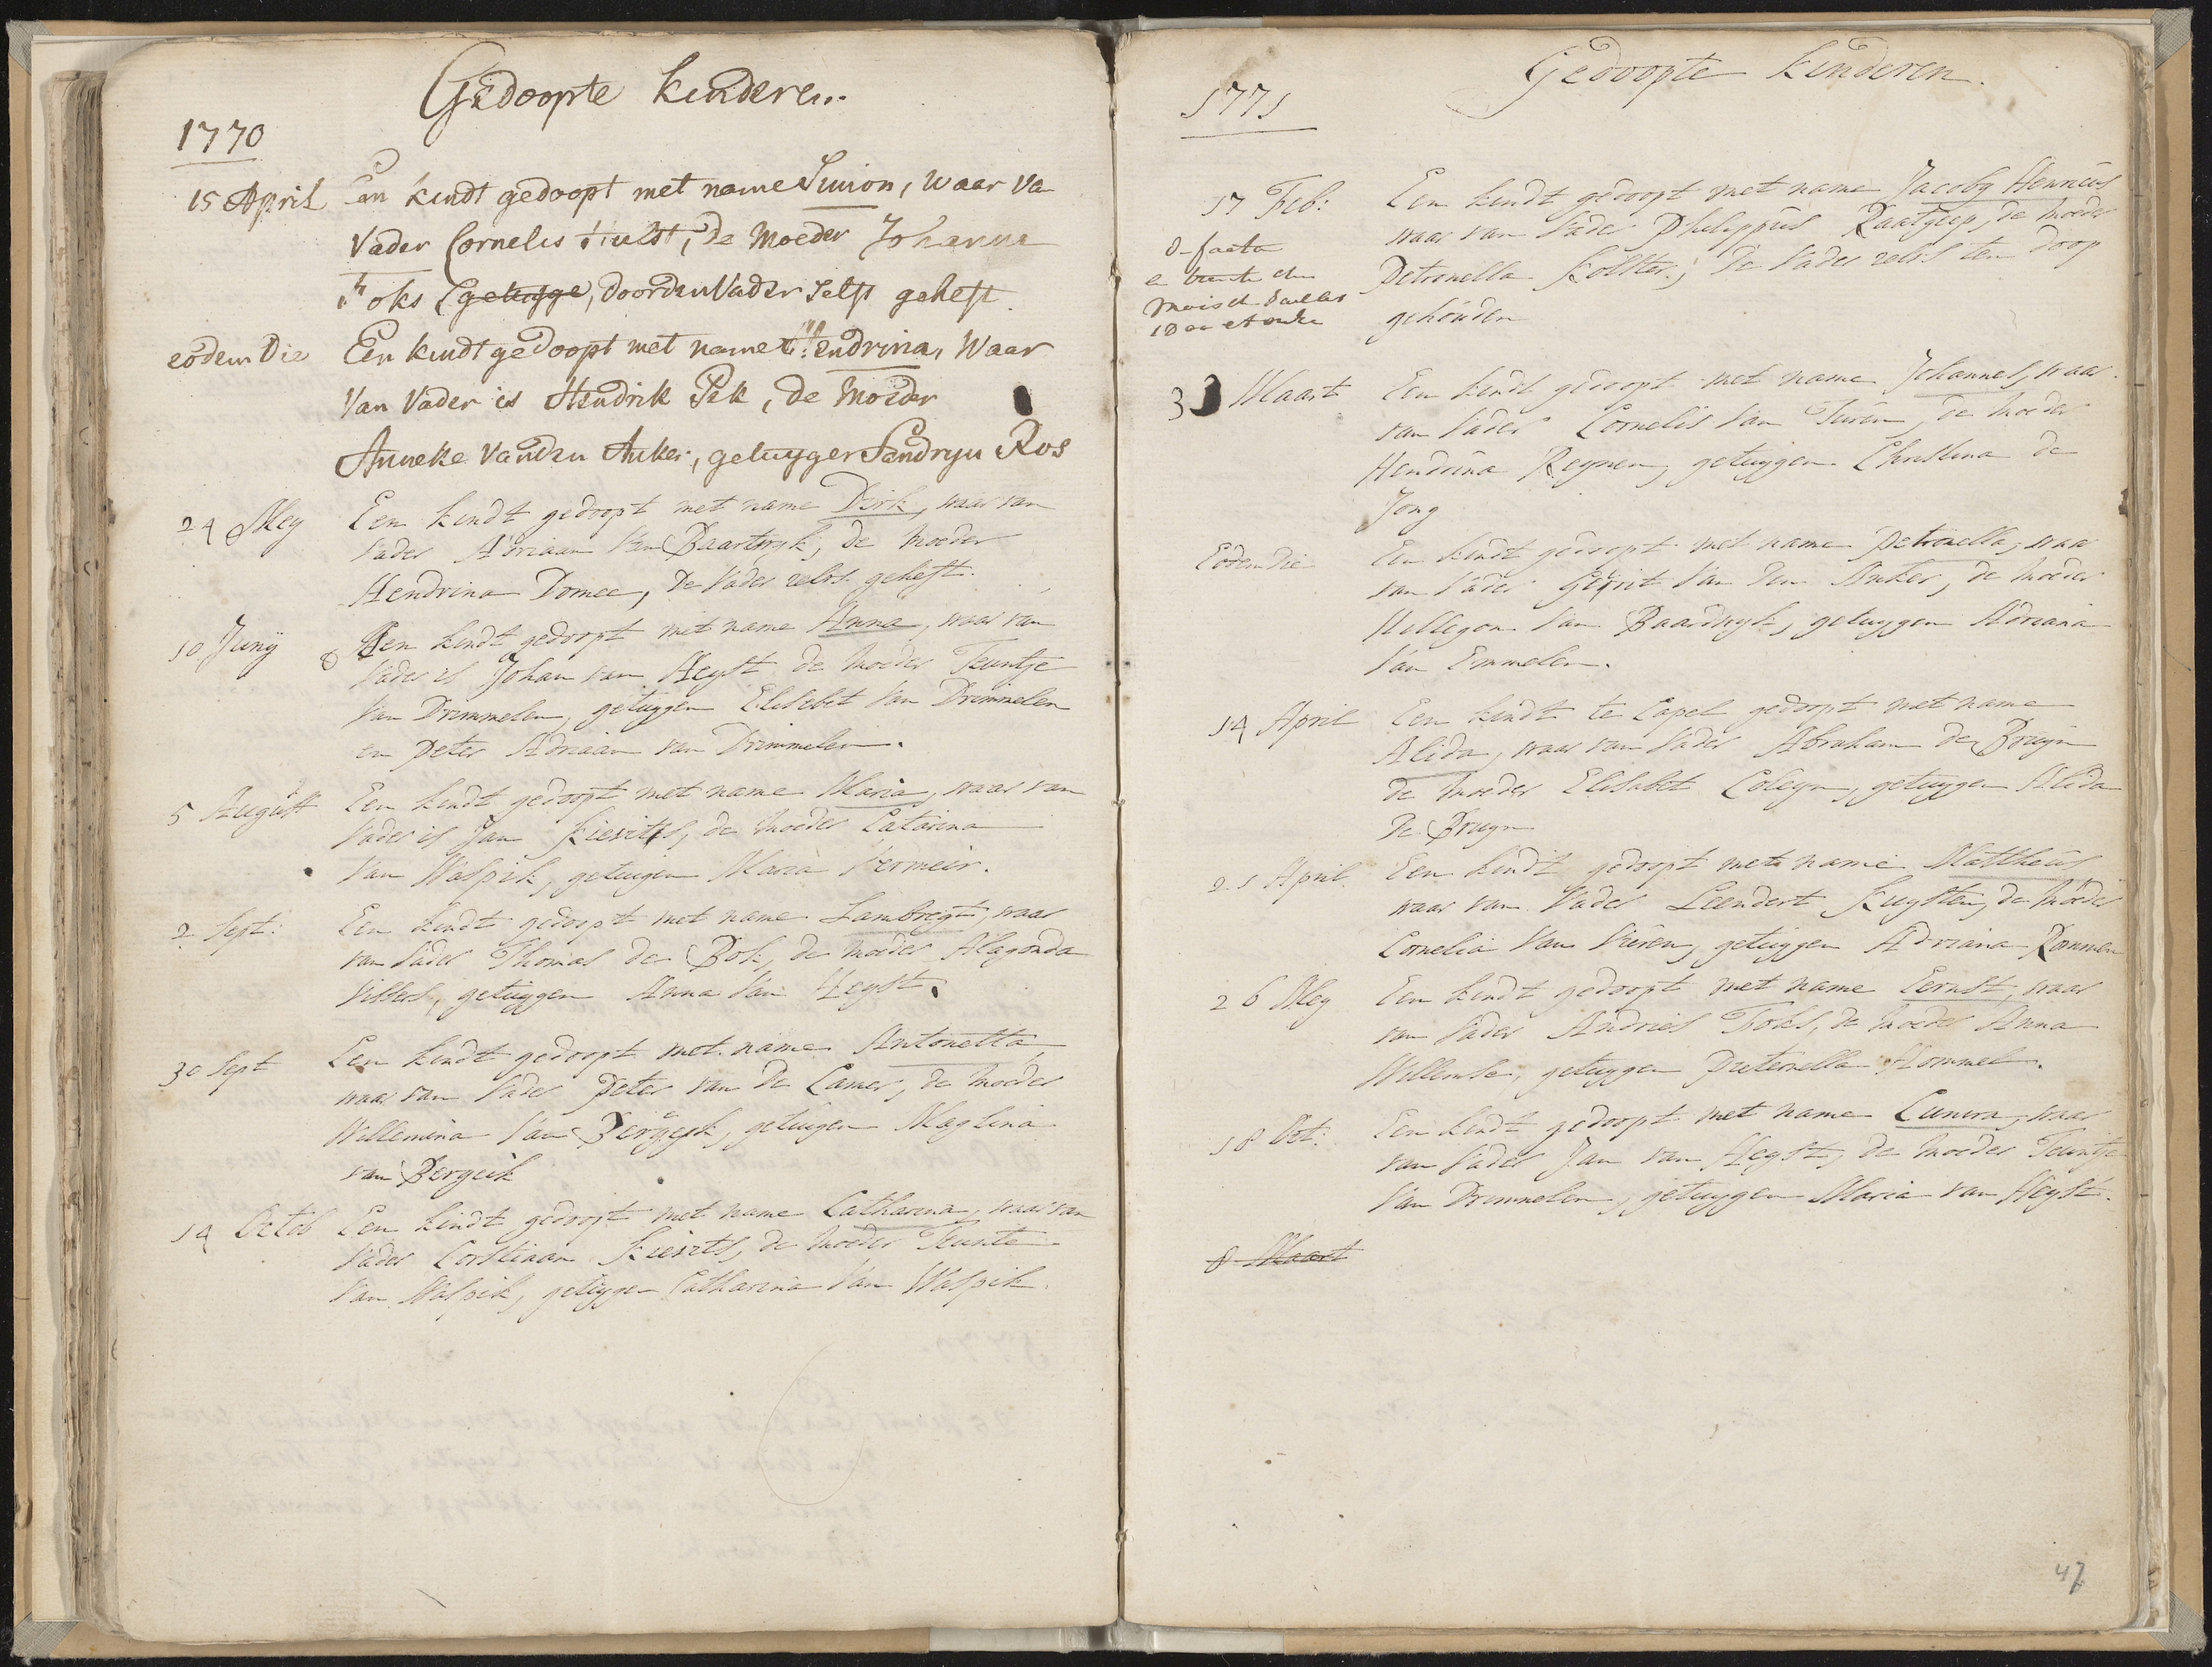 Gedoopte kinderen.
1770
15 April Een kindt gedoopt met name Simon, waar va
vader Cornelis Hulst, de Moeder Johanna
Foks (getuyge, door den Vader self geheft.
eodem Die Een kindt gedoopt met name Hendrina, Waar
Van Vader is Hendrik Pek, de Moeder
Anneke van den Anker, getuyger Sendryn Ros
24 Mey Een kindt gedoopt met name Dirk, waar van
Vader Adriaan Van Baartwyk, de Moeder
Hendrina Domee, De Vader zelvs geheft.
10 Juny Een kindt gedoopt met name Anna, waar van
Vader is Johan van Heyst de Moeder Teuntje
Van Drimmelen, getuygen Elisebet van Drimmelen
en Peter Adriaan van Drimmelen.
5 August Een kindt gedoopt met name Maria, waar van
Vader is Jan Kievits, de Moeder Catarina
Van Waspik, getuigen Maria Vermeir.
2 Sept: Een kindt gedoopt met name Lambregt, waar
van Vader Thomas de Bok, de Moeder Alagonda
Vissers, getuygen Anna Van Heyst.
30 Sept Een kindt gedoopt met name Antonetta,
waar van Vader Peter van De Camer, de Moeder
Willemina Van Bergeyk, getuigen Maglina
van Bergeik
14 Octob Een kindt gedoopt met name Catharina, waar van
Vader Corstiaan Kievits, de Moeder Teunte
Van Waspik, getuygen Catharina Van Waspik.
Gedoopte Kinderen.
1771
17 Feb: Een kindt gedoopt met name Jacoba Henricus
waar van Vader Philippus Raatgeep, de Moeder
Petronella Kolster, De Vader zelvs ten doop
gehouden
3 Maart Een kindt gedoopt met name Johannes, waar
van Vader Cornelis Van Turen, de Moeder
Hendrina Reynen, getuygen Christina de
Jong
Eodem Die Een kindt gedoopt met name Petronella, waar
van Vader Gerrit Van Den Anker, de Moeder
Willegon Van Baardwyk, getuygen Adriana
Van Emmelen.
14 April Een kindt te Capel gedoopt met name
Alida, waar van Vader Abraham de Bruyn
de Moeder Elisabet Coleyn, getuygen Alida
De Bruyn
21 April Een kindt gedoopt met name Mattheus
waar van Vader Leendert Kuysten, de Moeder
Cornelia Van Vuren, getuygen Adriana Rommen
26 Mey Een kindt gedoopt met name Eernst, waar
van Vader Andries Foks, de Moeder Anna
Willemse, getuygen Pieternella Hommel.
18 Oct: Een kindt gedoopt met name Cunera, waar
van Vader Jan van Heyst, de Moeder Teuntje
Van Drimmelen, getuygen Maria van Heyst.
8 Maart
47